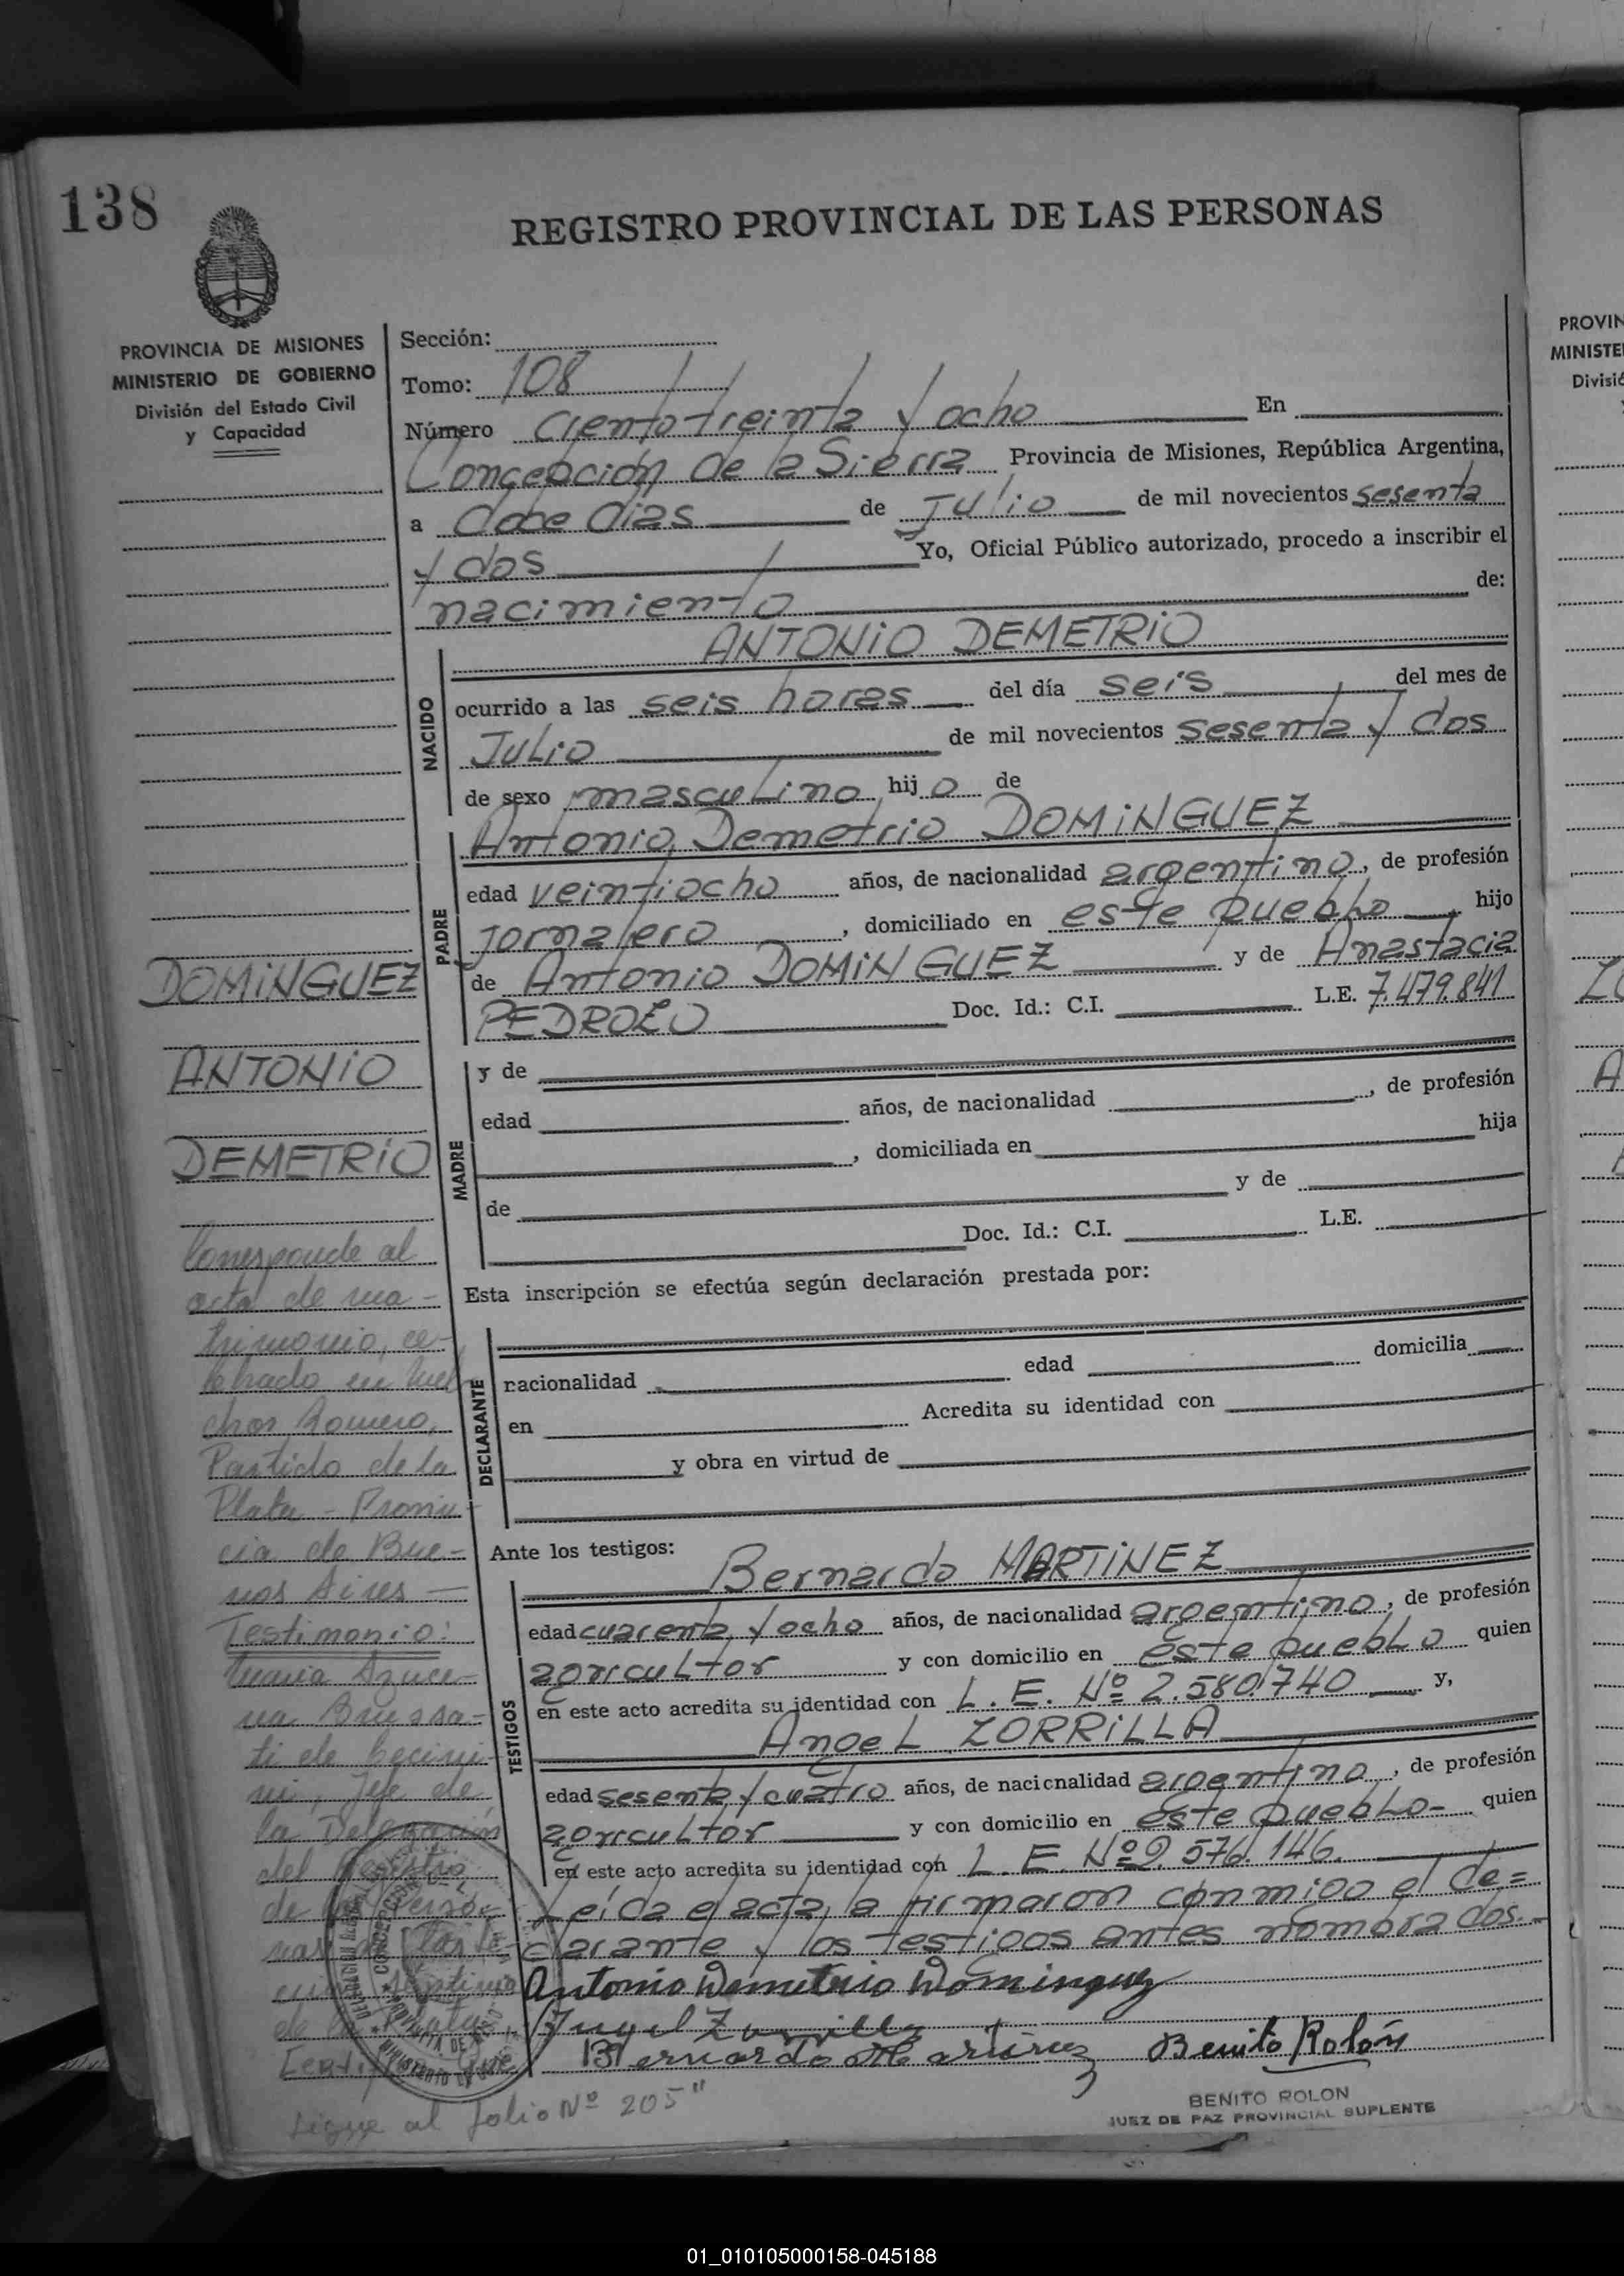 138
REGISTRO PROVINCIAL DE LAS PERSONAS
PROVINCIA DE MISIONES
MINISTERIO DE GOBIERNO
División del Estado Civil
y Capacidad
Sección:
Tomo: 108
Número Ciento treinta y ocho En
Concepción de la Sierra Provincia de Misiones, República Argentina,
a doce dias de Julio de mil novecientos sesenta
y dos Yo, Oficial Público autorizado, procedo a inscribir el
nacimiento de:
NACIDO
ANTONIO DEMETRIO
ocurrido a las seis horas del día seis del mes de
Julio de mil novecientos sesenta y dos
de sexo masculino hijo de
PADRE
Antonio Demetrio DOMINGUEZ
edad veintiocho años, de nacionalidad argentino, de profesión
Jornalero, domiciliado en este pueblo, hijo
de Antonio DOMINGUEZ y de Anastacia
PEDROZO Doc. Id.: C.I. L.E. 7.479.841
MADRE
y de
edad años, de nacionalidad , de profesión
, domiciliada en hija
de y de
Doc. Id.: C.I. L.E.
Esta inscripción se efectúa según declaración prestada por:
DECLARANTE
nacionalidad edad domicilia
en Acredita su identidad con
y obra en virtud de
Ante los testigos:
TESTIGOS
Bernardo MARTINEZ
edad cuarenta y ocho años, de nacionalidad argentino, de profesión
agricultor y con domicilio en éste pueblo quien
en este acto acredita su identidad con L.E. Nº 2.580.740 y,
Angel ZORRILLA
edad sesenta y cuatro años, de nacionalidad argentino, de profesión
agricultor y con domicilio en éste pueblo- quien
en este acto acredita su identidad con L.E. Nº 2.576.146.
Leída el acta, la firmaron conmigo el de=
clarante y los testigos antes nombrados.-
Antonio Demetrio Dominguez
Angel Zorrilla
Bernardo Martinez Benito Rolón
BENITO ROLON
JUEZ DE PAZ PROVINCIAL SUPLENTE
DOMINGUEZ
ANTONIO
DEMETRIO
Corresponde al
acta de ma-
trimonio, ce-
lebrado en Mel
chor Romero,
Partido de la
Plata - Provin-
cia de Bue-
nos Aires
Testimonio:
Maria Azuce-
na Brussa-
ti de
Jefe de
la Delegación
del Registro
de Perso-
nas
de la Plata
Sigue al folio Nº 205"
PROVIN
MINISTE
Divisió
01_010105000158-045188